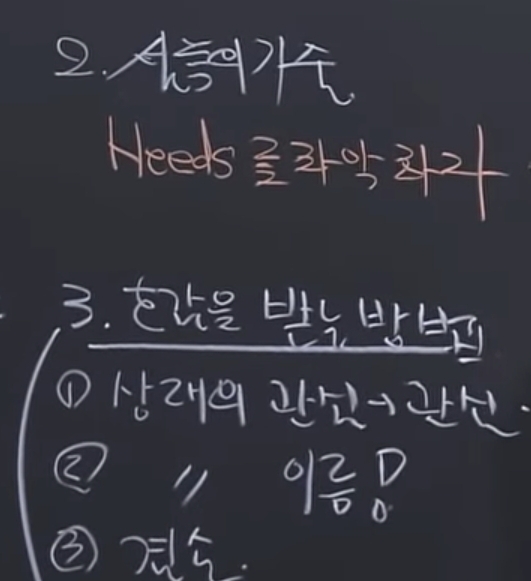 2.
Needs를 파악 하라
3. 호감을 받는 방법
① 상대의 관심→관심.
② 〃 이름!
③ 겸손.